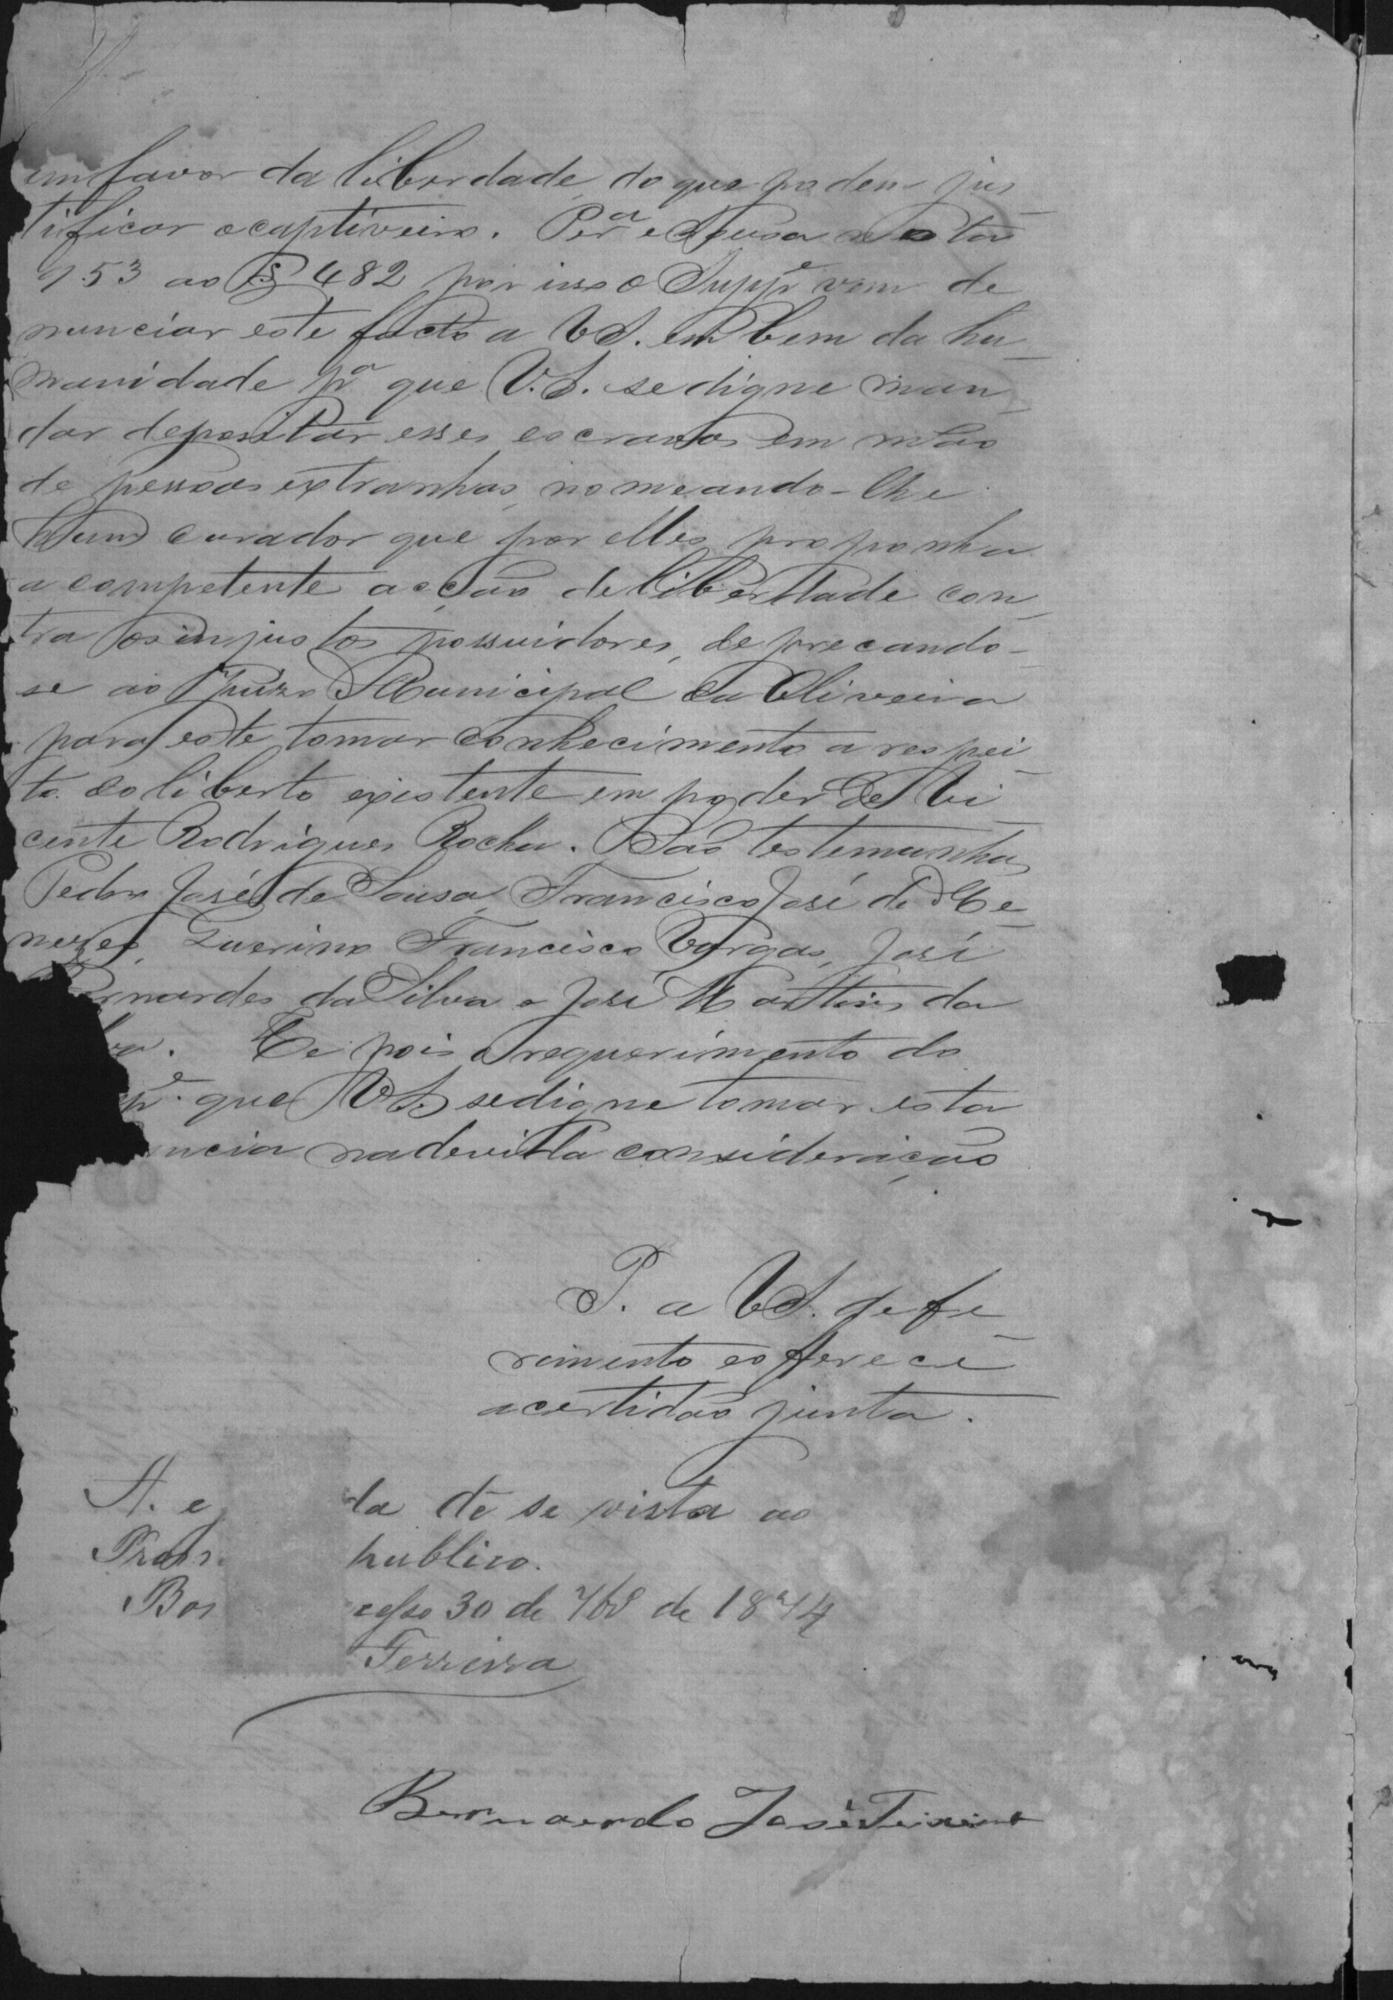 em favor da liberdade, do que podem jus
tificar o captiveiro. Per.ª e Sousa nota
753 ao § 482 por isso o Supp.e vem de
nunciar este facto a V.S. em bem da hu-
manidade p.ª que V.S. se digne man-
dar depositar esses escravos em mão
de pessoas extranhas, nomeando-lhe
hum curador que por elles proponha
a competente acção de liberdade con-
tra os injustos possuidores, deprecando-
se ao Juizo Municipal da Oliveira
para este tomar conhecimento a respei-
to do liberto existente em poder de Vi-
cente Rodrigues Rocha. São testemunhas
Pedro José de Sousa, Francisco José de Me-
nezes, Querino Francisco Vargas, José
Bernardes da Silva e José Martins da
. He pois o requerimento do
p.e que V.S. se digne tomar esta
uncia na devida consideração
P. a V.S. defe-
rimento e offerece
a certidão junta.
A. e da dê se vista ao
Prom publico.
Bom cesso 30 de 7bº de 1874
Ferreira
Bernardo José Teixeira